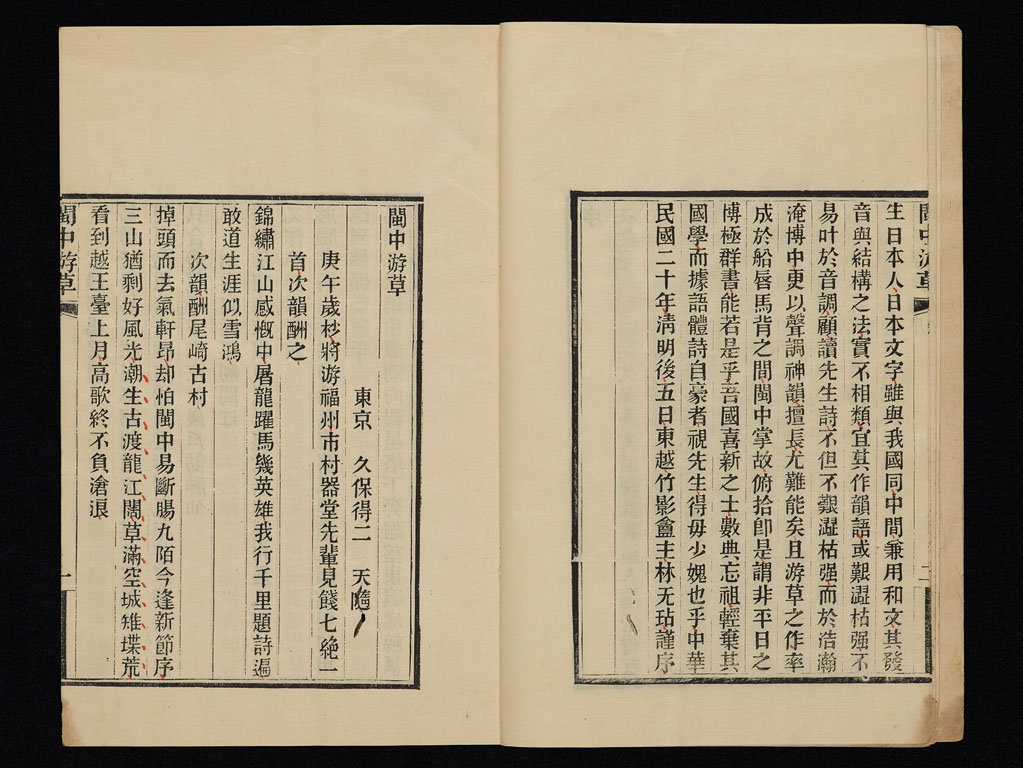 閩中游草
生日本人日本文字雖與我國同中間兼用和文其發
音與結構之法實不相類宜其作韻語或艱澀枯强不
易叶於音調顧讀先生詩不但不艱澀枯强而於浩瀚
淹博中更以聲調神韻擅長尤難能矣且游草之作率
成於船唇馬背之間閩中掌故俯拾卽是謂非平日之
博極群書能若是乎吾國喜新之士數典忘祖輕棄其
國學而據語體詩自豪者視先生得毋少媿也乎中華
民國二十年清明後五日東越竹影盦主林无玷謹序
閩中游草
東京 久保得二 天隨
庚午歲杪將游福州市村器堂先輩見餞七絶一
首次韻酬之
錦繡江山感慨中屠龍躍馬幾英雄我行千里題詩遍
敢道生涯似雪鴻
次韻酬尾崎古村
掉頭而去氣軒昂却怕閩中易斷腸九陌今逢新節序
三山猶剩好風光潮生古渡龍江闊草滿空城雉堞荒
看到越王臺上月高歌終不負滄浪
閩中游草
一